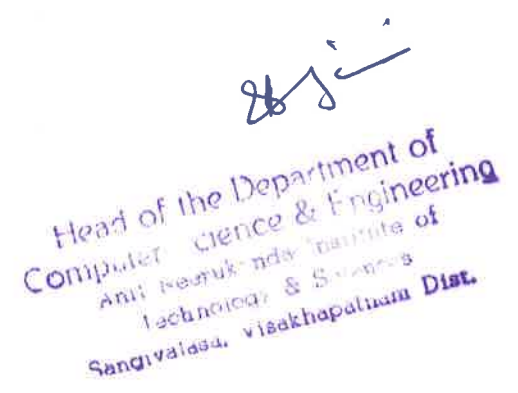 Head of the Department of
Computer Science & Engineering
Anil Neerukonda Institute of
Technology & Sciences
Sangivalasa, Visakhapatnam Dist.